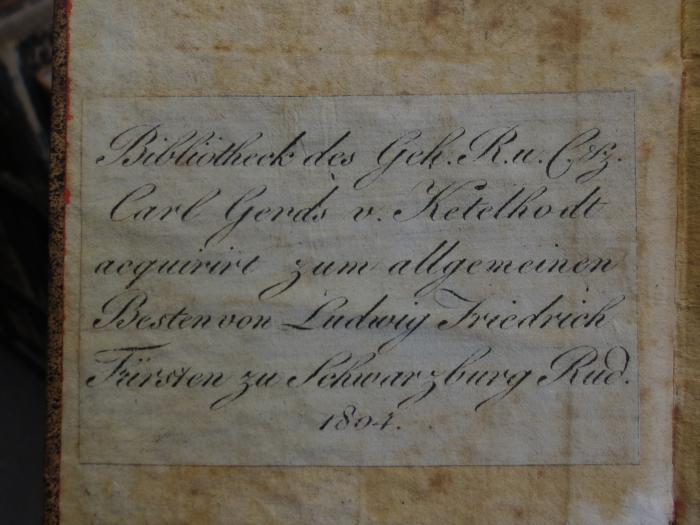 Bibliotheck des Geh. R. u. Czz.
Carl Gerd's v. Ketelhodt
acquirirt zum allgemeinen
Besten von Ludwig Friedrich
Fürsten zu Schwarzburg Rud.
1804.